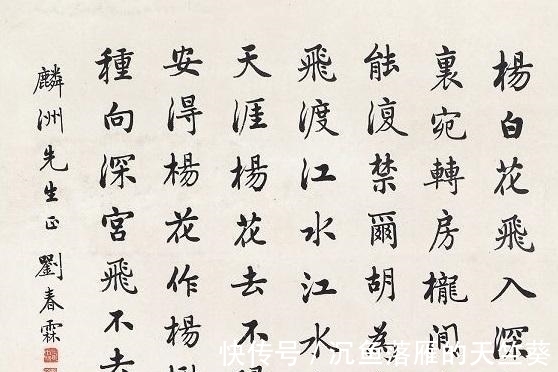 楊白花飛入深
裏宛轉房櫳間
能復禁爾胡為
飛渡江水江水
天涯楊花去不
安得楊花作楊
種向深宮飛不去
麟洲先生正 劉春霖
快传号/沉鱼落雁的天竺葵